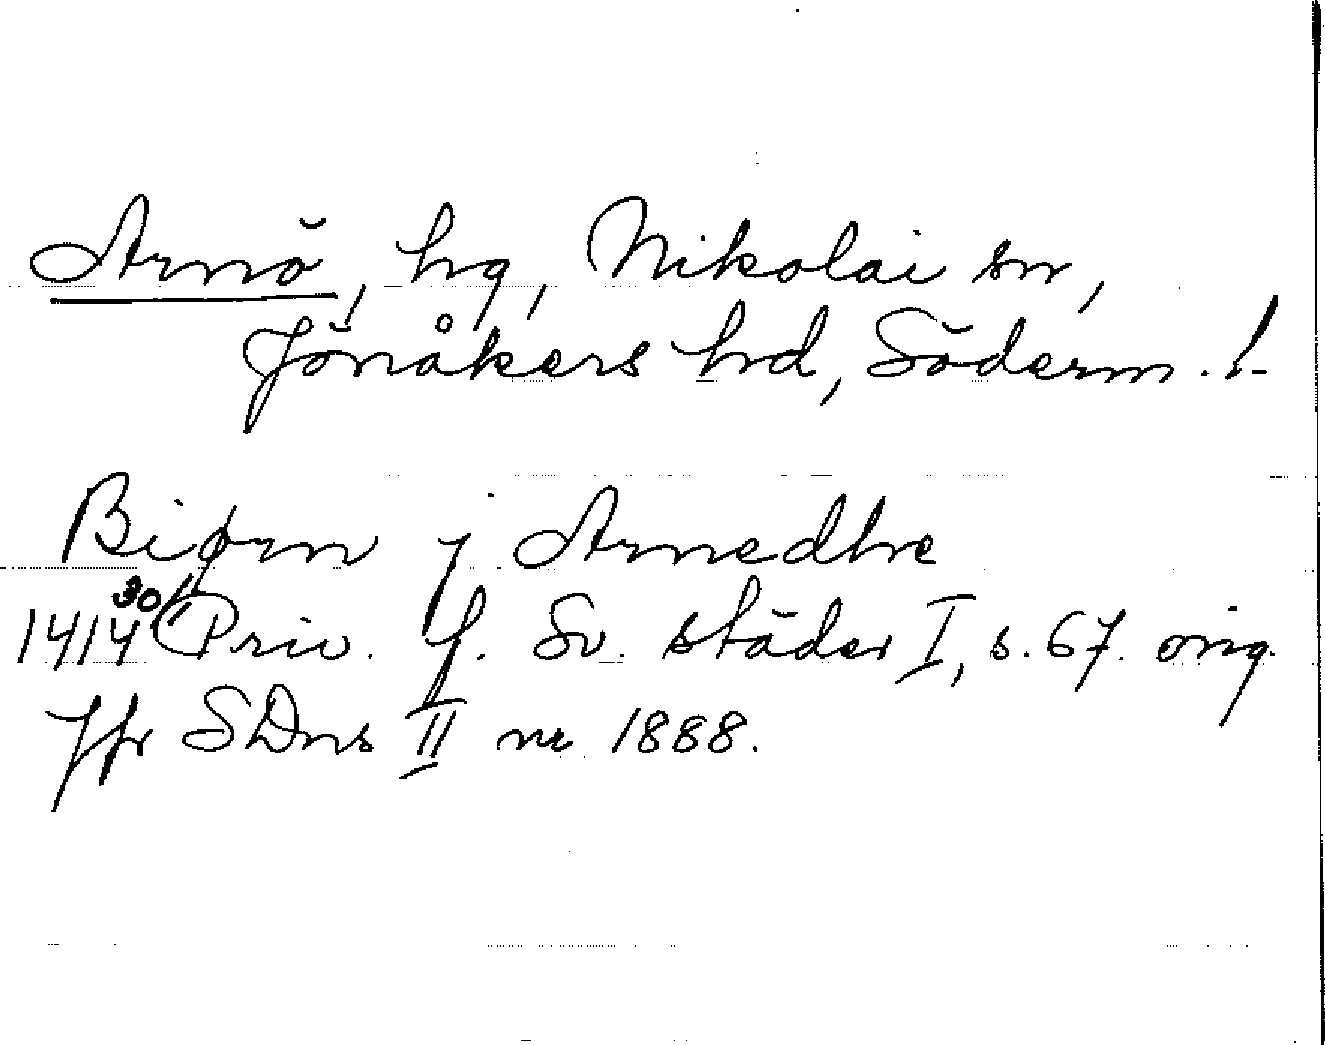 Arnö, hg, Nikolai sn,
Jönåkers hrd, Söderm. l.
Biørn j Arnedhe
1414 30/11 Priv. f. Sv. städer I, s. 67. orig.
Jfr SDns II nr 1888.